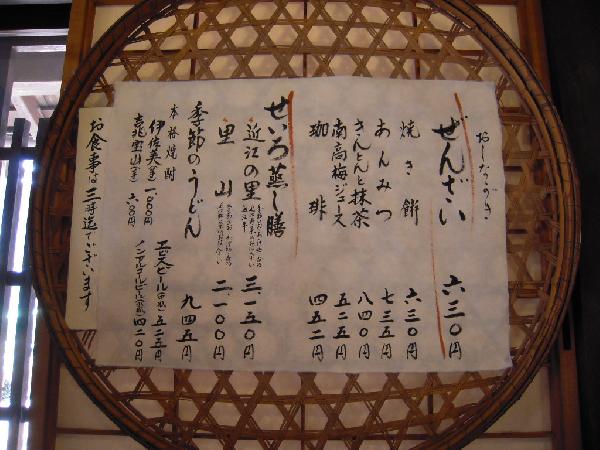 おしながき
ぜんざい 六三〇円
焼き餅 六三〇円
あんみつ 七三五円
きんとんと抹茶 八四〇円
南高梅ジュース 五二五円
珈琲 四五二円
せいろ蒸し膳
近江の里 三、一五〇円
里山 二、一〇〇円
季節のうどん 九四五円
本格焼酎
伊佐美(芋) 一、〇〇〇円
吉兆宝山(芋) 六〇〇円
ヱビスビール(中瓶) 五二五円
ノンアルコールビール(小瓶) 四二〇円
お食事は三時迄でございます